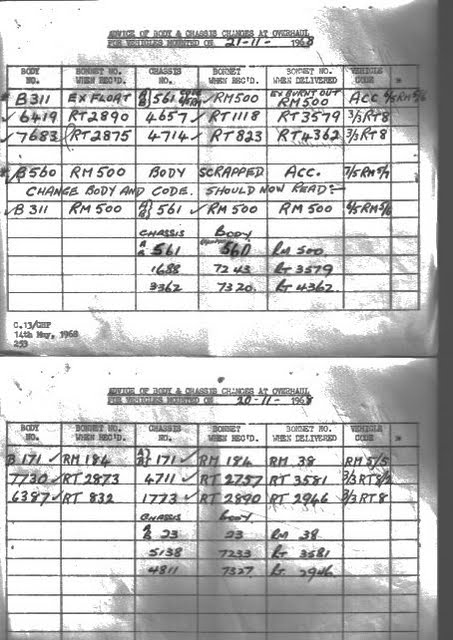 ADVICE OF BODY & CHASSIS CHANGES AT OVERHAUL
FOR VEHICLES MOUNTED ON 21-11- 1968
BODY NO. BONNET NO. WHEN REC'D. CHASSIS NO. BONNET WHEN REC'D. BONNET NO. WHEN DELIVERED VEHICLE CODE
* B311 EX FLOAT A/B 561 ✓ RM500 EX BURNT OUT RM 500 ACC
✓ 6419 RT2890 4657 ✓ RT1118 RT3579 3/3RT8
✓ 7683 RT2875 4714 ✓ RT823 RT4362 3/3RT8
* B560 RM 500 BODY SCRAPPED ACC. 7/5RM5/7
CHANGE BODY AND CODE. SHOULD NOW READ:-
✓ B 311 RM 500 A/B 561 ✓ RM 500 RM 500 6/5RM5/6
CHASSIS BODY
A/B 561 560 RM 500
1688 7243 RT 3579
3362 7320. RT 4362.
C.13/CHP
14th May, 1968
253
ADVICE OF BODY & CHASSIS CHANGES AT OVERHAUL
FOR VEHICLES MOUNTED ON 20-11- 1968
BODY NO. BONNET NO. WHEN REC'D. CHASSIS NO. BONNET WHEN REC'D. BONNET NO. WHEN DELIVERED VEHICLE CODE
B 171 ✓ RM 184 A/B 171 ✓ RM 184 RM 38 RM 5/5
7730 ✓ RT 2873 4711 ✓ RT 2757 RT 3581 3/3 RT8/2
6387 ✓ RT 832 1773 ✓ RT 2890 RT 2946 3/3 RT8
CHASSIS BODY
A/B 23 23 RM 38
5138 7233 RT 3581
4811 7327 RT 2946